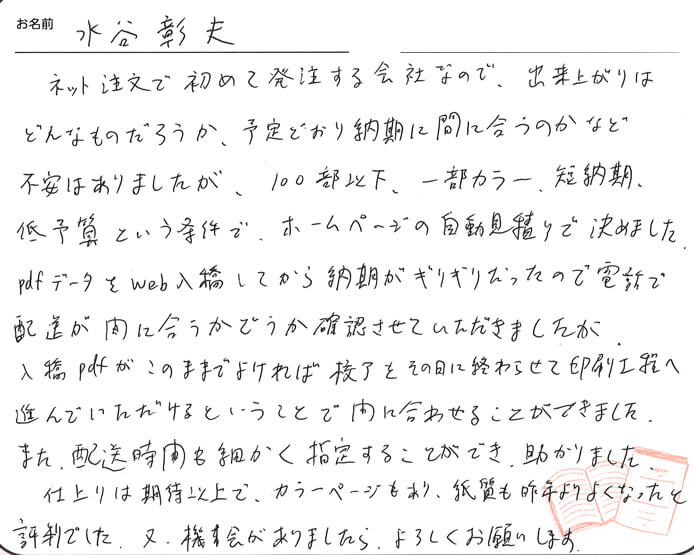 お名前 水谷彰夫
ネット注文で初めて発注する会社なので、出来上がりは
どんなものだろうか、予定どおり納期に間に合うのかなど
不安はありましたが、100部以下、一部カラー、短納期、
低予算という条件で、ホームページの自動見積りで決めました。
pdfデータをweb入稿してから納期がギリギリだったので電話で
配送が間に合うかどうか確認させていただきましたが、
入稿pdfがこのままでよければ校了とその日に終わらせて印刷工程へ
進んでいただけるということで間に合わせることができました。
また、配送時間も細かく指定することができ、助かりました。
仕上りは期待以上で、カラーページもあり、紙質も昨年よりよくなったと
評判でした。又、機会がありましたら、よろしくお願いします。